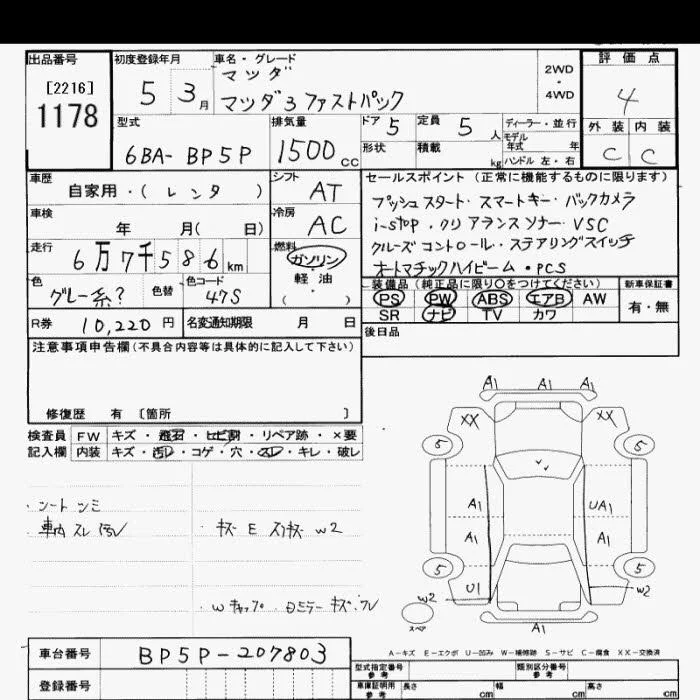 出品番号
[2216]
1178
初度登録年月
5 3月
車名・グレード
マツダ
マツダ3 ファストバック
2WD
・
4WD
評価点
4
外装 内装
C C
型式
6BA-BP5P
排気量
1500cc
ドア 5
定員 5人
形状
積載 kg
ディーラー・並行
モデル
年式 年
ハンドル 左・右
車歴
自家用・(レンタ)
シフト
AT
車検
年 月( 日)
冷房
AC
走行
6万7千586km
燃料
ガソリン
・
軽油
( )
色
グレー系?
色替
色コード
47S
R券 10,220円
名変通知期限 月 日
セールスポイント(正常に機能するものに限ります)
プッシュスタート・スマートキー・バックカメラ
i-stop・クリアランスソナー・VSC
クルーズコントロール・ステアリングスイッチ
オートマチックハイビーム・PCS
装備品(純正品に限り○をつけてください)
PS PW ABS エアB AW
SR ナビ TV カワ
新車保証書
有・無
後日品
注意事項申告欄(不具合内容等は具体的に記入して下さい)
修復歴 有 〔箇所 〕
検査員
記入欄
FW キズ・飛石・ヒビ割・リペア跡・×要
内装 キズ・汚レ・コゲ・穴・スレ・キレ・破レ
・シートシミ
車内スレ汚レ
・キズ E スリキズ W2
A1 A1 A1
XX XX
5 5
A1 UA1
A1 A1
5 5
U1 W2
W2
スペア
A1
A-キズ E-エクボ U-凹み W-補修跡 S-サビ C-腐食 XX-交換済
車台番号 BP5P-207803
登録番号
型式指定番号
参考
類別区分番号
参考
車庫証明用
参考
長さ cm 幅 cm 高さ cm